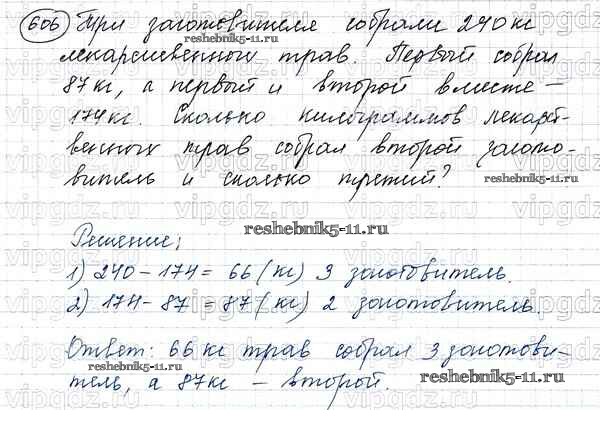 606 Три заготовителя собрали 240 кг
лекарственной трав. Первый собрал
87 кг, а первый и второй вместе –
174 кг. Сколько килограммов лекарст-
венных трав собрал второй загото-
витель и сколько третий?
reshebnik5-11.ru
reshebnik5-11.ru
reshebnik5-11.ru
Решение;
1) 240 – 174 = 66 (кг) 3 заготовитель.
2) 174 – 87 = 87 (кг) 2 заготовитель.
Ответ: 66 кг трав собрал 3 заготови-
тель, а 87 кг – второй.
reshebnik5-11.ru
reshebnik5-11.ru
vipgdz.ru